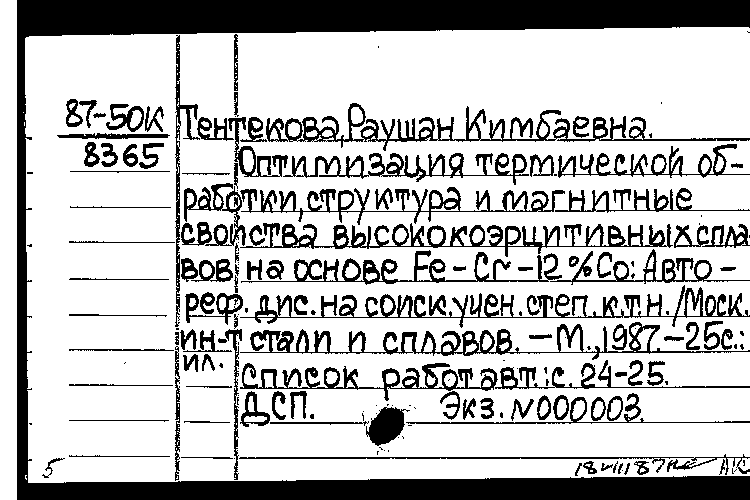 87-50К
8365
Тентекова, Раушан Кимбаевна.
Оптимизация термической об-
работки, структура и магнитные
свойства высококоэрцитивных спла-
вов на основе Fe-Cr-12%Co: Авто-
реф. дис. на соиск. учен. степ. к.т.н. /Моск.
ин-т стали и сплавов. – М., 1987. – 25с.:
ил.
Список работ авт.: с. 24-25.
ДСП. Экз. N000003.
5